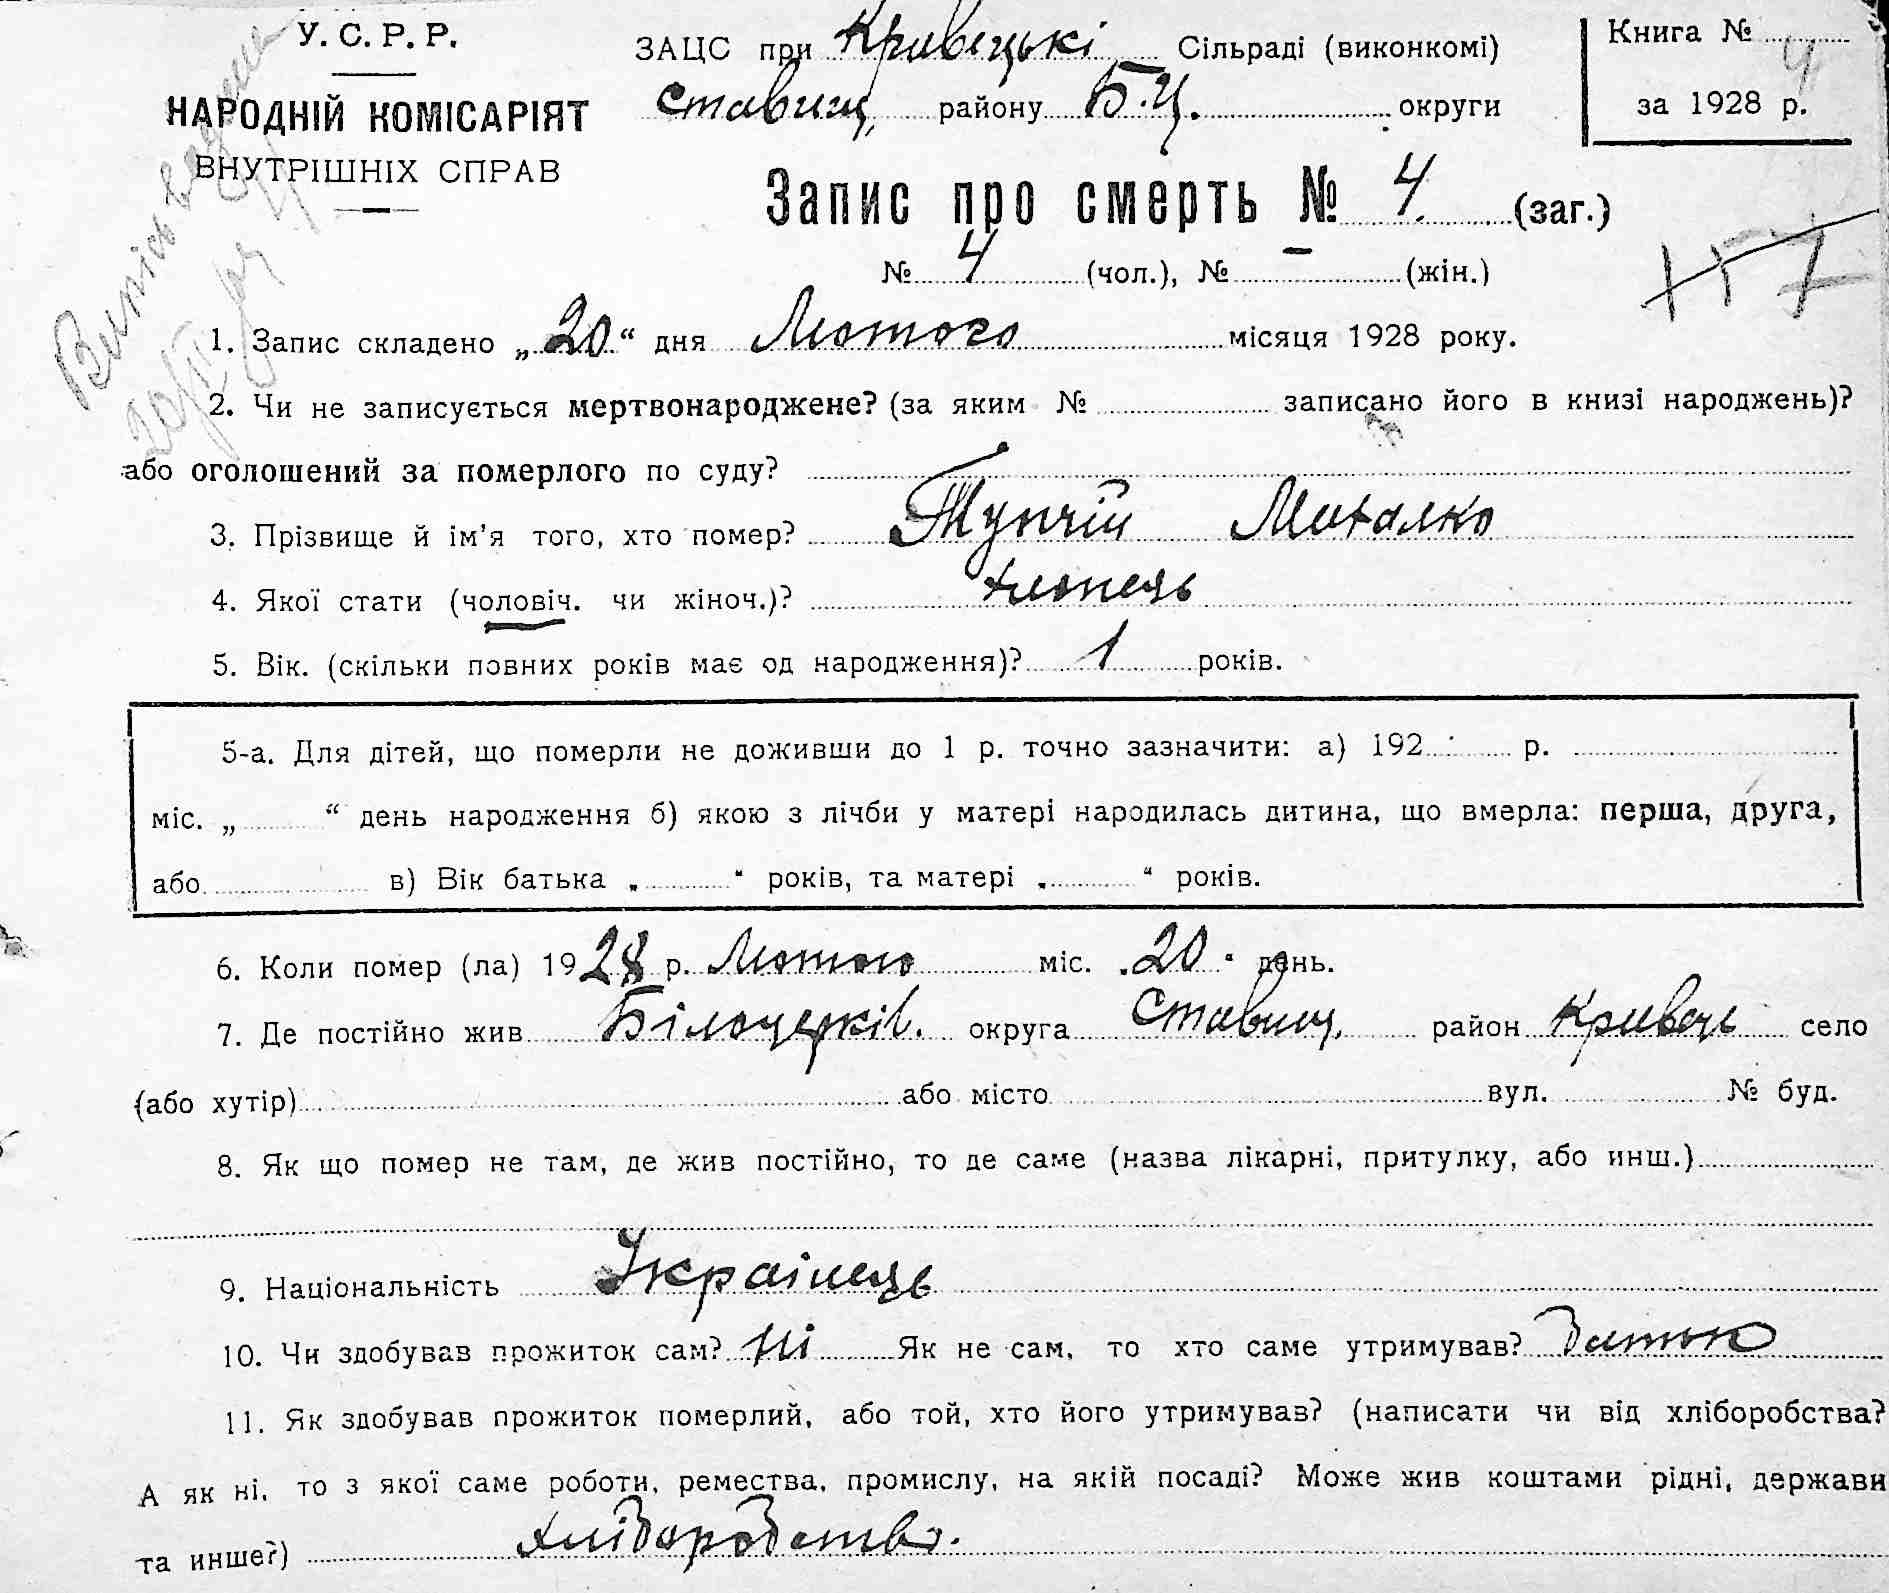 У.С.Р.Р.
НАРОДНІЙ КОМІСАРІЯТ
ВНУТРІШНІХ СПРАВ
ЗАЦС при Кривецькі Сільраді (виконкомі)
Ставищ. району Б.Ц. округи
Книга № 4
за 1928 р.
Запис про смерть № 4. (заг.)
№ 4 (чол.), № – (жін.)
157
Випись видана
1. Запис складено „20“ дня Лютого місяця 1928 року.
2. Чи не записується мертвонароджене? (за яким № записано його в книзі народжень)?
або оголошений за померлого по суду?
3. Прізвище й ім'я того, хто помер? Тупчій Михалко
4. Якої стати (чоловіч. чи жіноч.)? хлопець
5. Вік. (скільки повних років має од народження)? 1 років.
5-а. Для дітей, що померли не доживши до 1 р. точно зазначити: а) 192 р.
міс. „ “ день народження б) якою з лічби у матері народилась дитина, що вмерла: перша, друга,
або в) Вік батька „ “ років, та матері „ “ років.
6. Коли помер (ла) 1928 р. Лютого міс. „20“ день.
7. Де постійно жив Білоцерків. округа Ставищ. район Кривець село
(або хутір) або місто вул. № буд.
8. Як що помер не там, де жив постійно, то де саме (назва лікарні, притулку, або инш.)
9. Національність Українець
10. Чи здобував прожиток сам? Ні Як не сам, то хто саме утримував? Батько
11. Як здобував прожиток померлий, або той, хто його утримував? (написати чи від хліборобства?
А як ні, то з якої саме роботи, ремества, промислу, на якій посаді? Може жив коштами рідні, держави
та инше?) хліборобство.